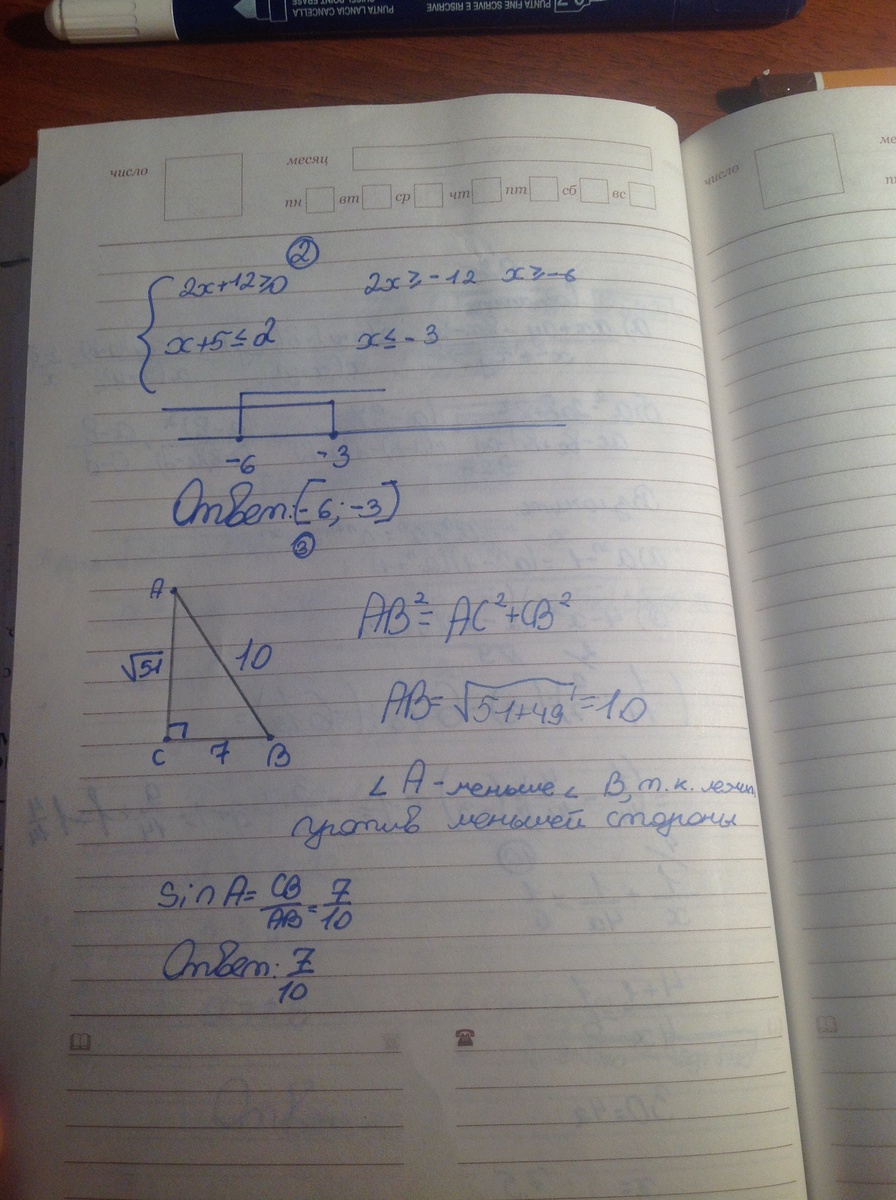 PUNTA LANCIA CANCELLA
PUNTA FINE SCRIVE E RISCRIVE
число
месяц
пн вт ср чт пт сб вс
число
②
2x+12≥0 2x≥-12 x≥-6
x+5≤2 x≤-3
-6 -3
Ответ: [-6; -3]
③
A
√51 10
C 7 B
AB²= AC²+CB²
AB=√51+49=10
∠ A - меньше ∠ B, т.к. лежит
против меньшей стороны
Sin A= CB/AB = 7/10
Ответ: 7/10